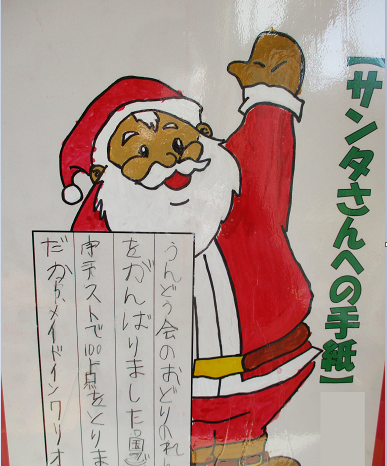 【サンタさんへの手紙】
うんどう会のおどりのれん
をがんばりました。国ご
字テストで100点をとりま
だから、メイドインワリオ